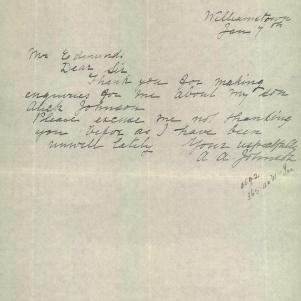 Williamstown
Jan 7th
Mr Edmund.
Dear Sir
Thank you for making
enquiries for me about my son
Alick Johnson
Please excuse me not thanking
you before as I have been
unwell lately Yours respectfully
A A Johnson